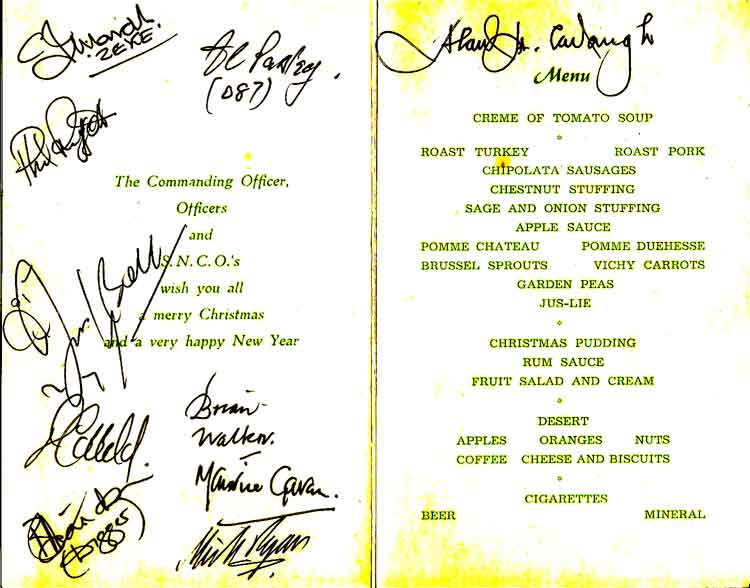 ZEKE.
(D87)
The Commanding Officer,
Officers
and
S.N.C.O.'s
wish you all
a merry Christmas
and a very happy New Year
Brian
Walker.
Maurice
(Digger)
Menu
CREME OF TOMATO SOUP
ROAST TURKEY ROAST PORK
CHIPOLATA SAUSAGES
CHESTNUT STUFFING
SAGE AND ONION STUFFING
APPLE SAUCE
POMME CHATEAU POMME DUEHESSE
BRUSSEL SPROUTS VICHY CARROTS
GARDEN PEAS
JUS-LIE
CHRISTMAS PUDDING
RUM SAUCE
FRUIT SALAD AND CREAM
DESERT
APPLES ORANGES NUTS
COFFEE CHEESE AND BISCUITS
CIGARETTES
BEER MINERAL